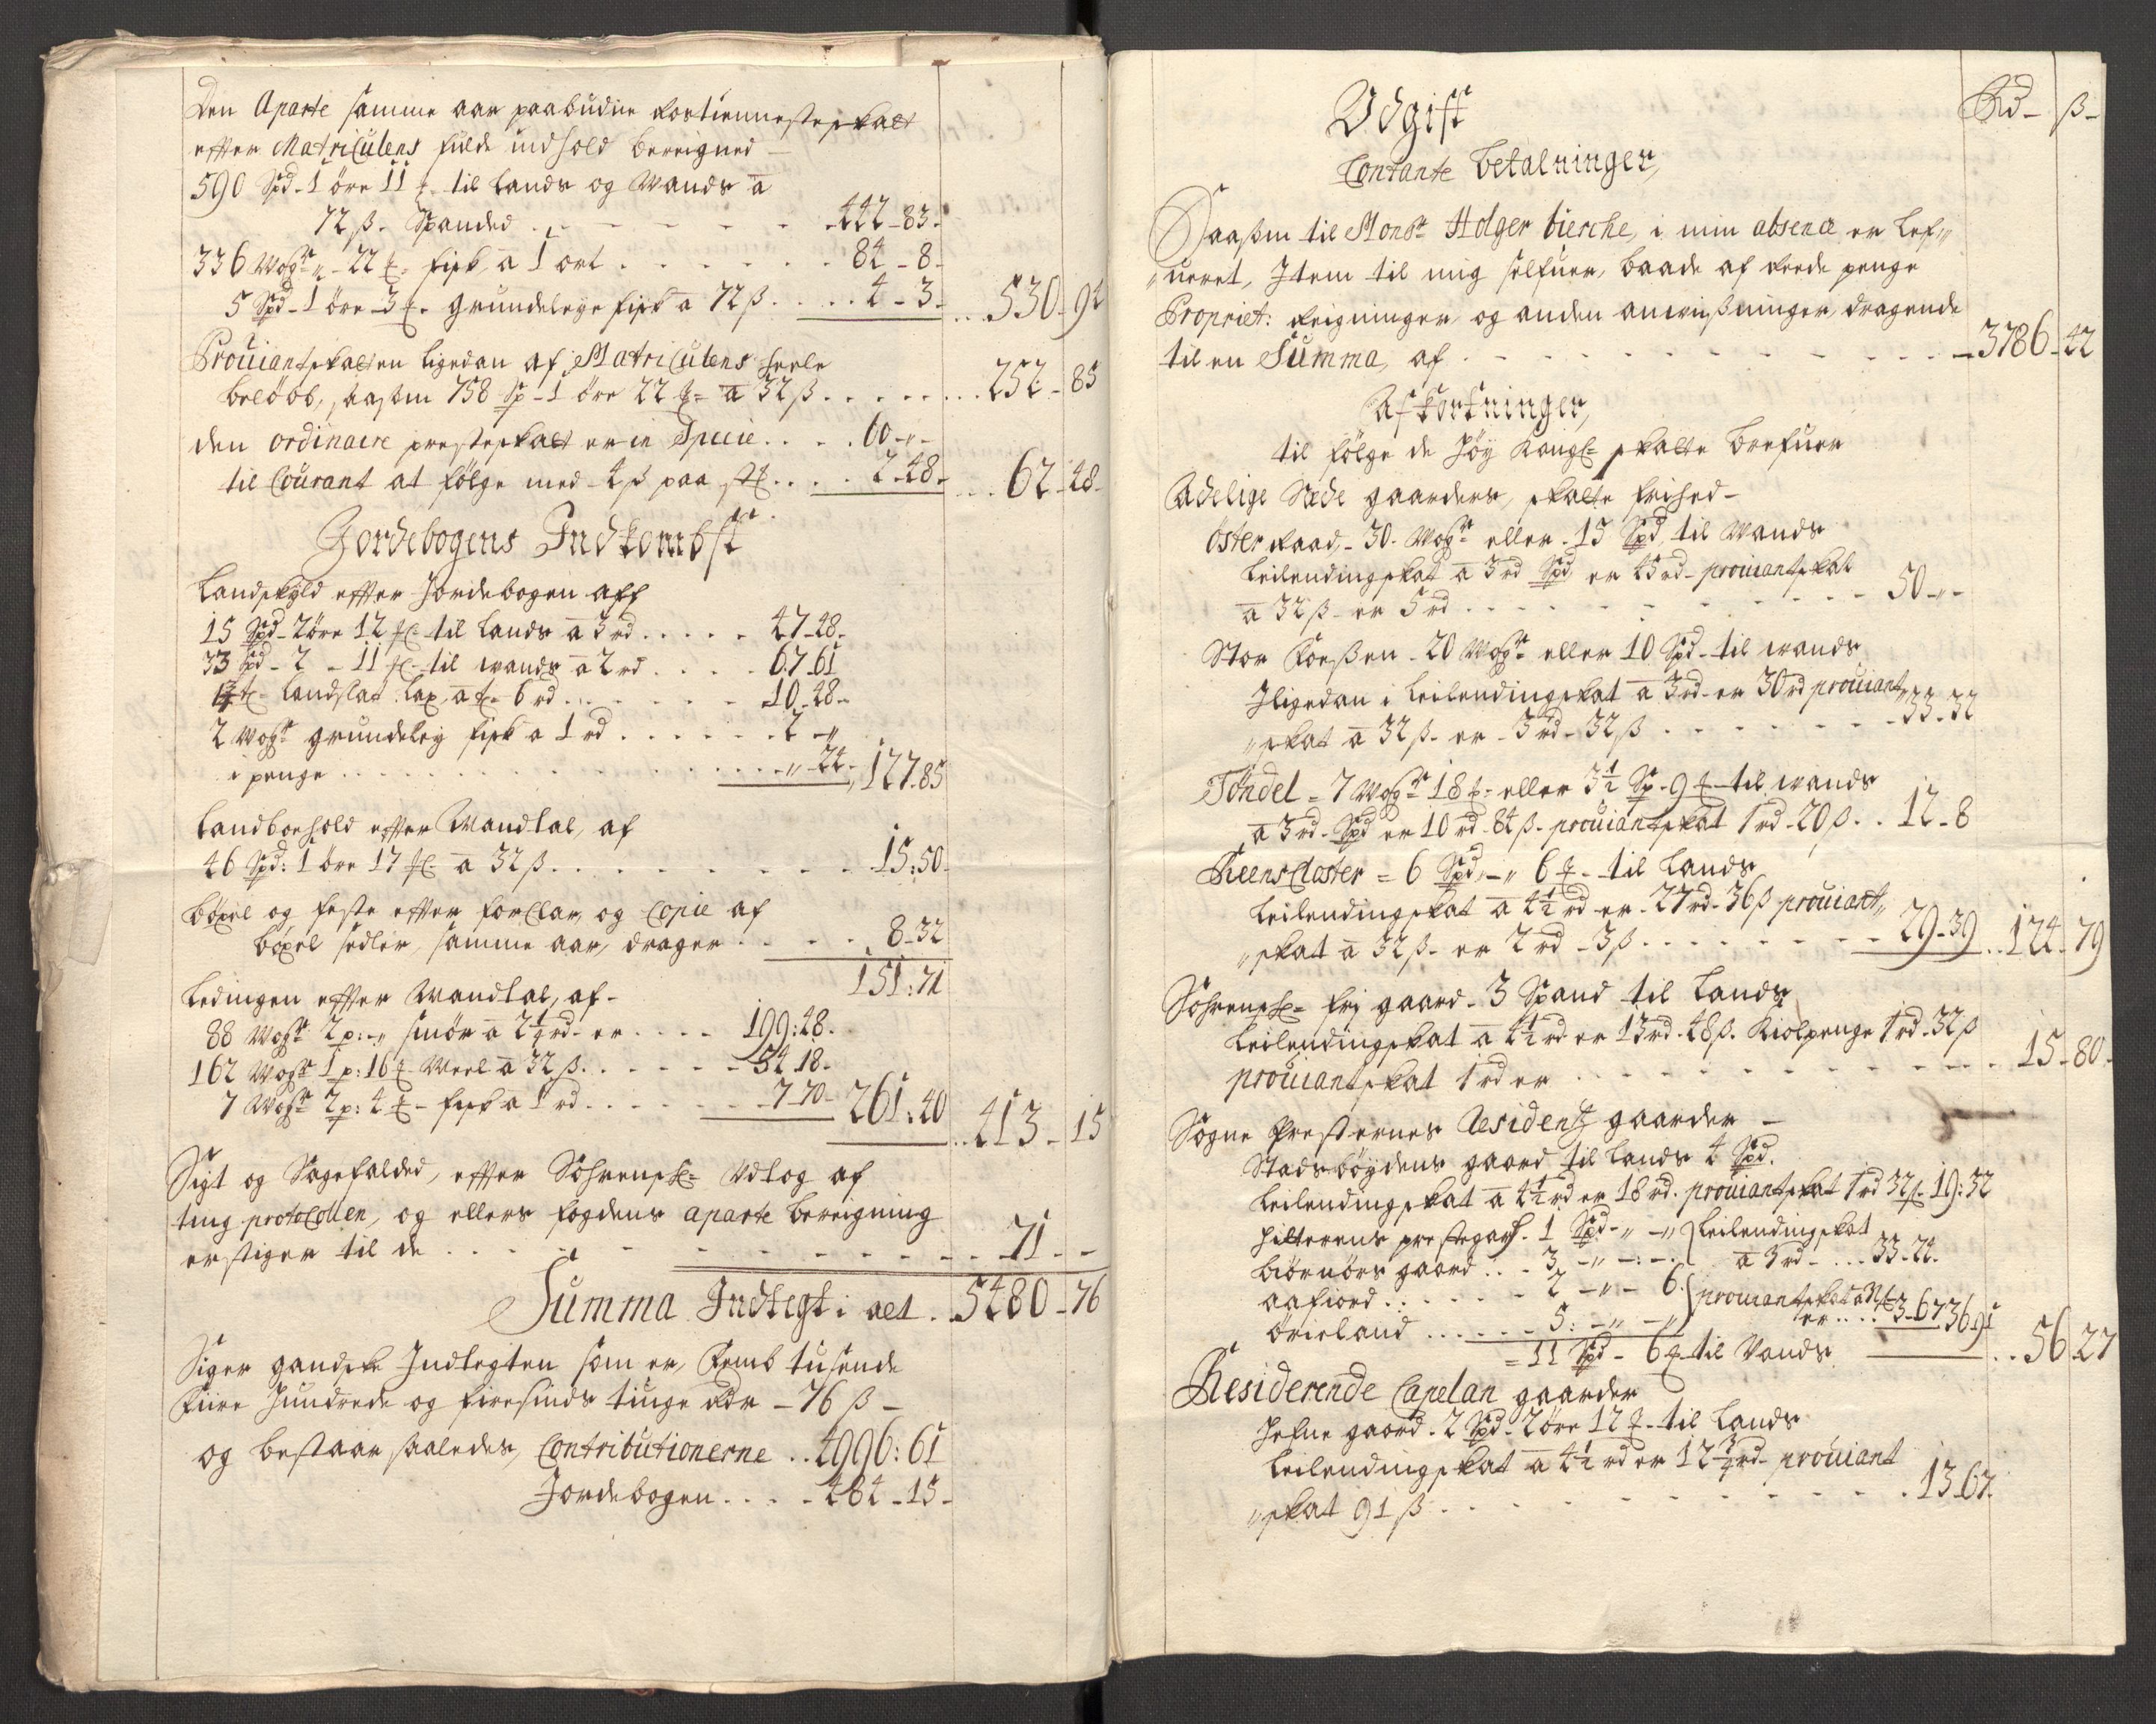 Den Aparte samme aar paabudne fortienneste skatt
effter Matriculens fulde indhold bereigned
590 Spd - 1 öre 11 # til Lands og Wands a
72 ß. Spanded . . . 442 - 83 -
336 Wog - 22 # fisk, a 1 ort . . . 84 - 8 -
5 Spd - 1 öre - 3 # grundeleye fisk a 72 ß . . . 4 - 3 - . . . 530 - 94
Prouiantskatten ligedan af Matriculens heele
belöb, saasom 758 Sp - 1 öre 22 # a 32 ß . . . 252 - 85
den ordinaire presteskatt er in Specie . . . 60 - " -
til Courant at fölge med 4 ß paa st# . . . 2 - 48 - . . . 62 - 48 -
Jordebogens Indkombst
Landskyld effter Jordebogen aff
15 Spd - 2 öre 12 # til Lands a 3 rd . . . 47 - 48 -
33 Spd - 2 - 11 # til wands a 2 rd . . . 67 - 61
Landslat Lax, a # 6 rd . . . 10 - 48 -
2 Wog grundeley fisk a 1 rd . . . 2 - "
i penge . . . " 24 - 127 . 85
Landboehold effter Mandtal, af
46 Spd : 1 öre 17 # a 32 ß . . . 15 : 50 -
böxel og feste effter forClar, og Copie af
böxel sedler, samme aar, drager . . . 8 - 32
151 : 71
Ledingen effter Mandtal, af -
88 Wog 2 p : - " smör a 2 1/4 rd - er . . . 199 : 48 -
162 Wog 1 p : 16 # Meel a 32 ß . . . 54 18 -
7 Wog 2 p : 4 # - fisk a 1 rd . . . 7 - 70 - 261 : 40 . . 413 - 15
Sigt og Sagefalded, effter Sohrensk= Vdtog af
ting protoCollen, og ellers fogdens aparte bereigning
erstiger til de . . . 71 - -
Summa Indtegt i alt . . 5480 - 76
Siger gandske Indtegten som er, Femb tusende
Fiire Hundrede og firesinds tiuge Rdr - 76 ß -
og bestaar saaledes, Contributionerne . . 4996 : 61
Jordebogen . . . 484 - 15 -
Udgift Rd - ß -
Contante betalninger,
Saasom til Mons Holger bierche, i min absence er Lef„
„ueret, Item til mig selfuer, baade af reede penge
Propriet: Reigninger og anden anwißninger, dragende
til en Summa, af . . . 3786 - 42
Afkortninger,
til fölge de Höy Kongl= skatte brefuer
Adelige Sæde gaarders, skatte frihed -
Öster Raad, - 30 - Wog eller - 15 Spd, til Wands
Leilendingskat a 3 rd Spd er 45 rd - prouiantskat
a 32 ß - er 5 rd . . . 50 - " -
Stor Foeßen - 20 Wog eller 10 Spd - til wands
Iligedan i Leilendingskat a 3 rd - er 30 rd prouiant„
„skat a 32 ß - er - 3 rd - 32 ß . . . 33 - 32
Töndel = 7 Wog 18 # - eller 3 1/2 Sp - 9 # - til wands
a 3 rd - Spd er 10 rd - 84 ß - prouiantskat 1 rd - 20 ß . . 12 - 8
Reens Closter = 6 Spd, - " 6 # - til Lands
Leilendingskat a 4 1/2 rd - er - 27 rd - 36 ß prouiant„
„skat a 32 ß - er 2 rd - 3 ß . . . 29 - 39 . . 124 - 79
Sohrensk= frj gaard - 3 Spand til Lands
Leilendingskat a 4 1/2 rd er 13 rd - 48 ß. Kiolpenge 1 rd - 32 ß
prouiantskat 1 rd er . . . 15 - 80 -
Sogne Presternes Residentz gaarder -
Stadsböydens gaard til Lands 4 Spd.
Leilendingskat a 4 1/2 rd er 18 rd. prouiantskat 1 rd 32 ß - 19 : 32
Hitterens prestegard . 1 Spd - " - " Leilendingskat
biörnörs gaard . . . 3 - " - : - a 3 rd - . . . 33 - 24 -
aafiord . . . 2 - " - 6 prouiantskat a 32 ß
örieland . . . 5 : - " - " er . . . 3 - 67 36 . 91
= 11 Spd - 6 # til Vands . . 56 . 27
Residerende Capelan gaarder
Hefne gaard - 2 Spd - 2 öre 12 # - til Lands
Leilendingskat a 4 1/2 rd er 12 3/4 rd - prouiant
„skat 91 ß . . . 13 - 67 -